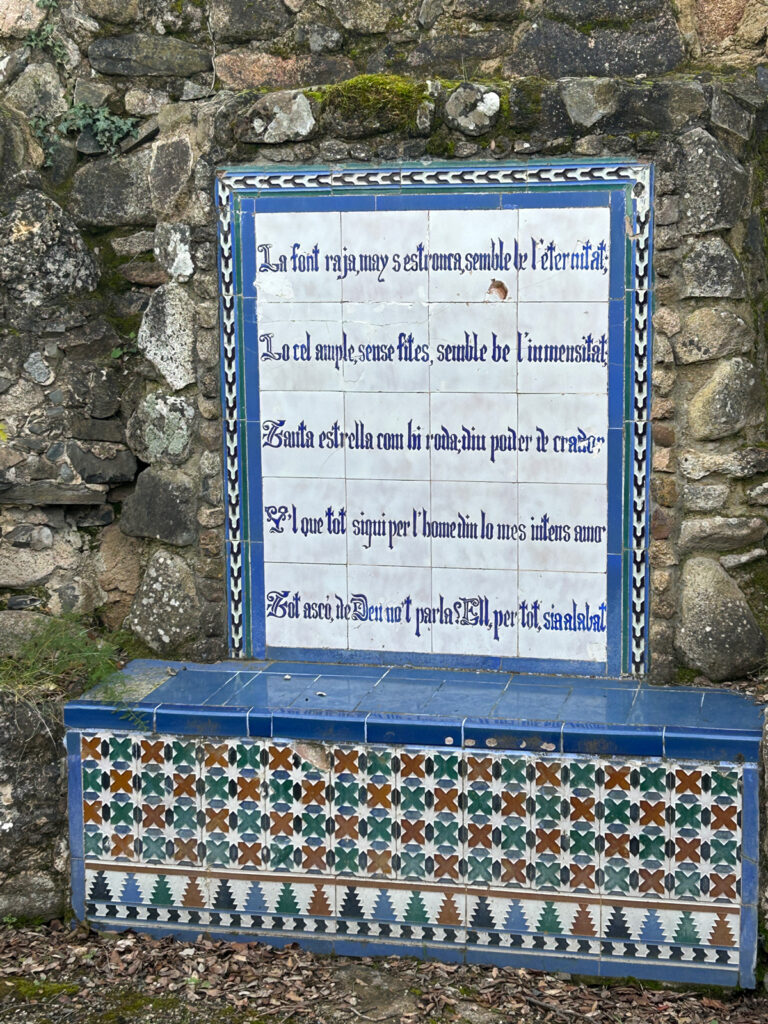 La font raja, may s estronca, semble be l'eternitat;
Lo cel ample, sense fites, semble be l'inmensitat;
Tanta estrella com hi roda; diu poder de crador
Y'l que tot sigui per l'home diu lo mes intens amor
Tot asco, de Deu no't parla? Ell, per tot, sia alabat